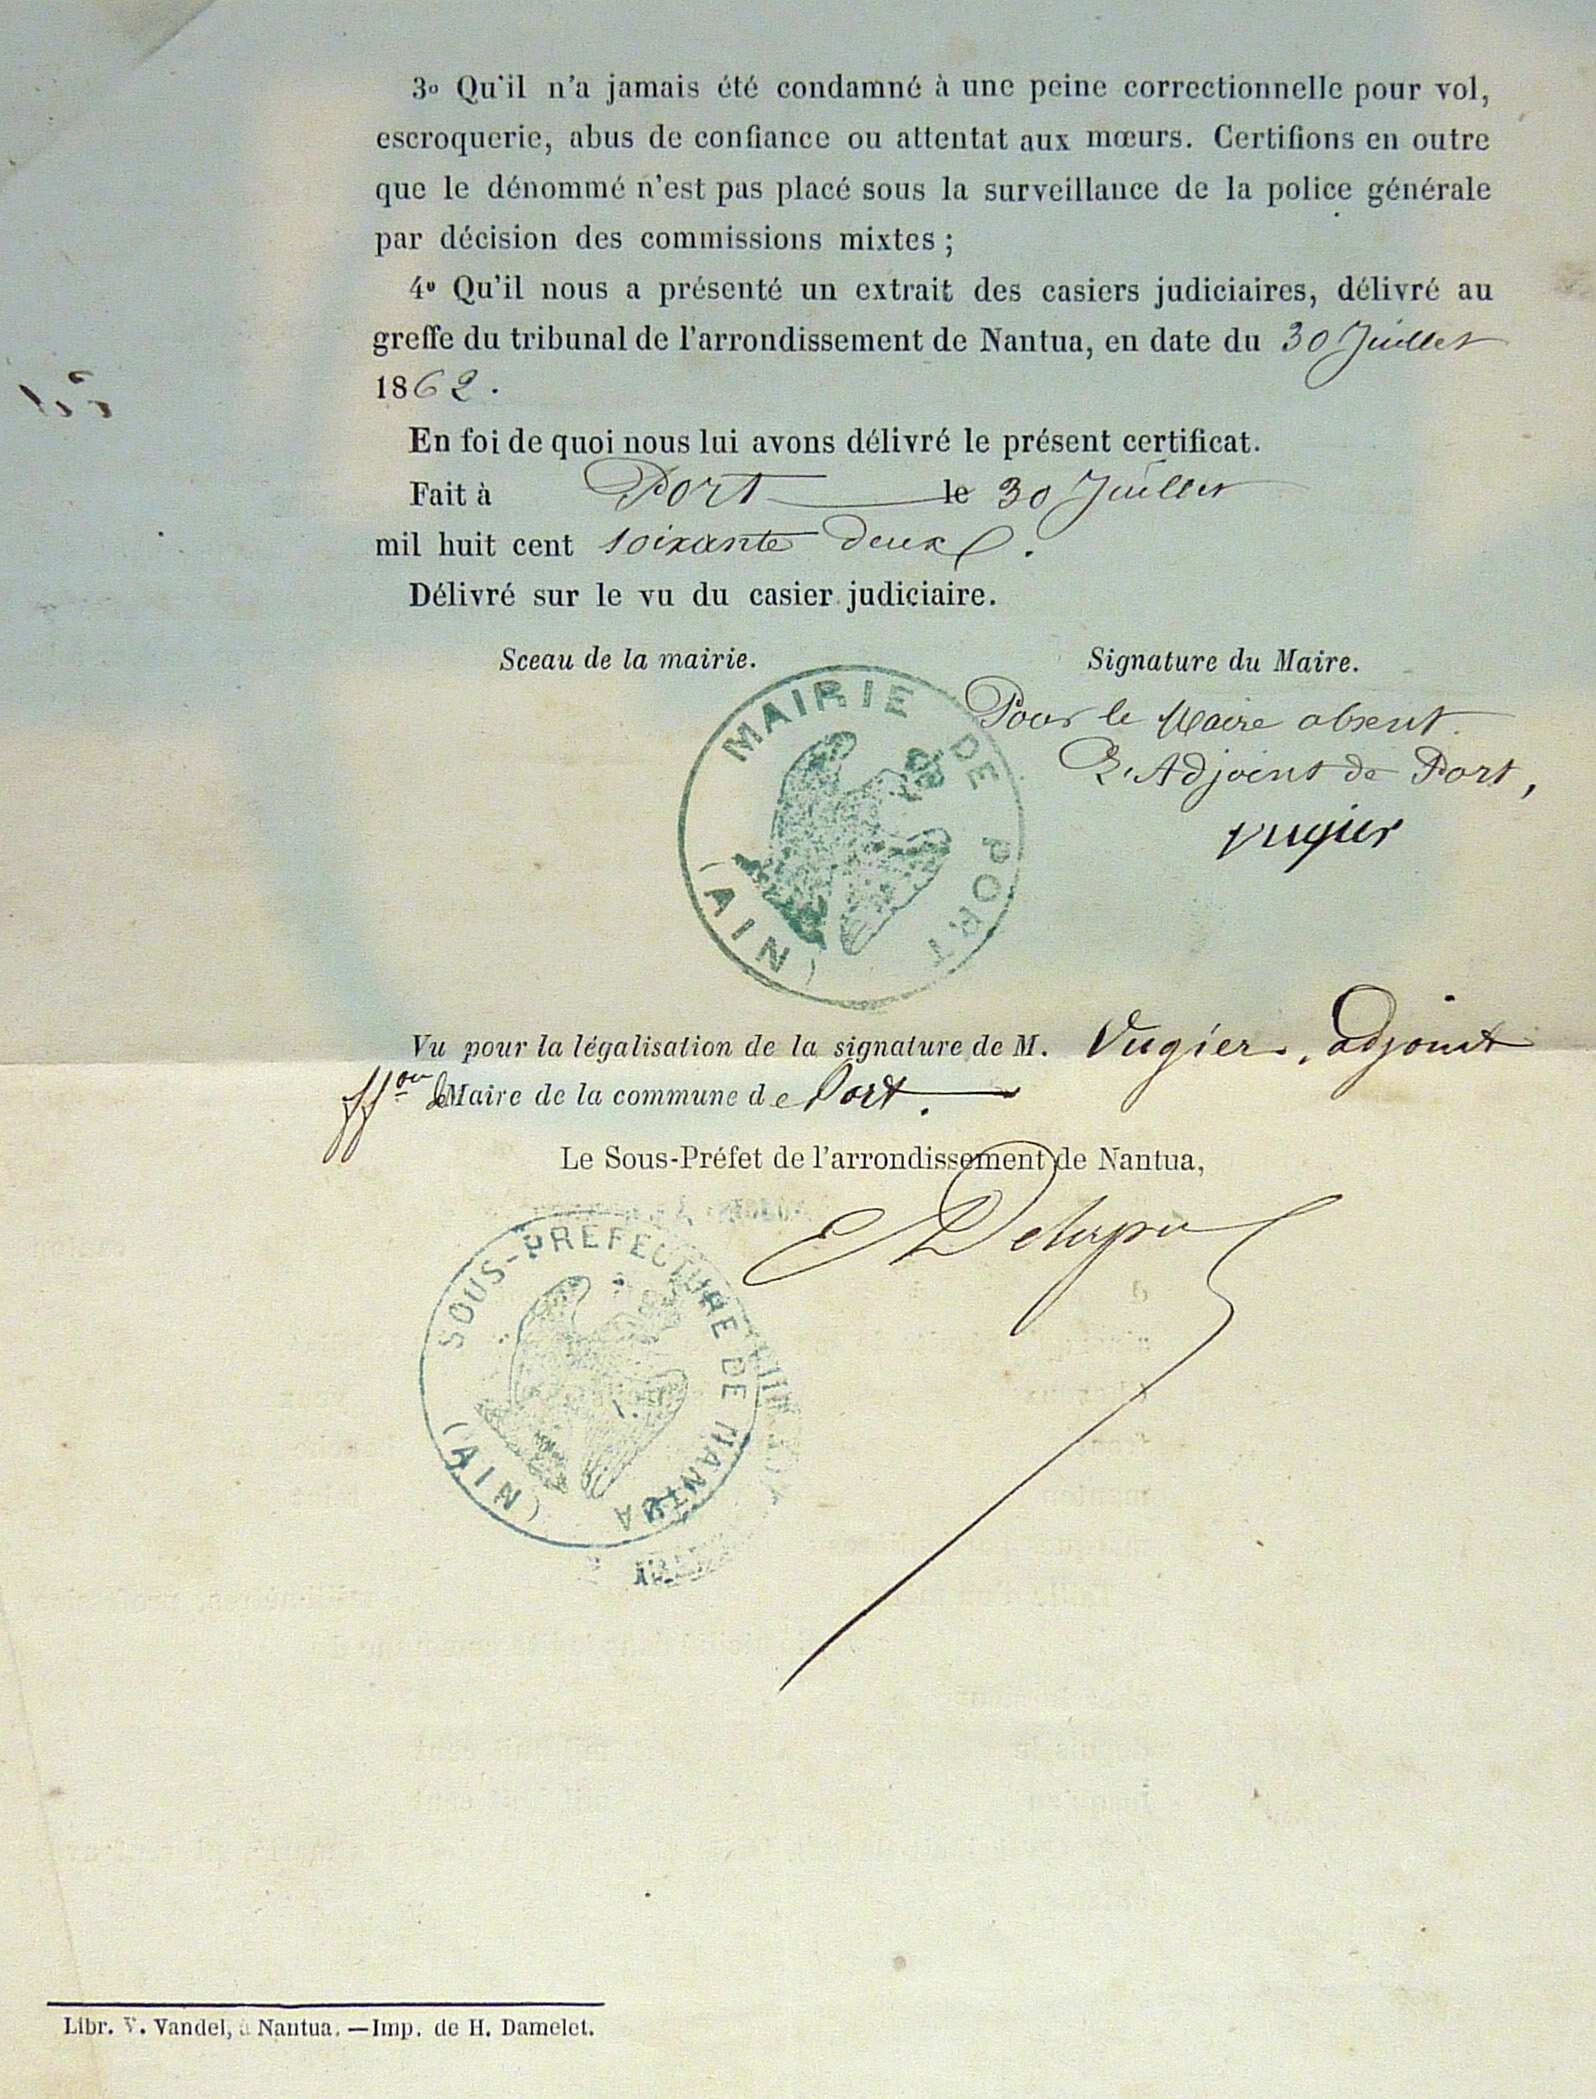 3o Qu'il n'a jamais été condamné à une peine correctionnelle pour vol,
escroquerie, abus de confiance ou attentat aux mœurs. Certifions en outre
que le dénommé n'est pas placé sous la surveillance de la police générale
par décision des commissions mixtes ;
4o Qu'il nous a présenté un extrait des casiers judiciaires, délivré au
greffe du tribunal de l'arrondissement de Nantua, en date du 30 Juillet
1862.
En foi de quoi nous lui avons délivré le présent certificat.
Fait à Port le 30 Juillet
mil huit cent soixante deux.
Délivré sur le vu du casier judiciaire.
Sceau de la mairie. Signature du Maire.
MAIRIE DE PORT
(AIN)
Pour le Maire absent
L'Adjoint de Port,
Vugier
Vu pour la légalisation de la signature de M. Vugier, adjoint
ffon de Maire de la commune de Port.
Le Sous-Préfet de l'arrondissement de Nantua,
SOUS-PREFECTURE DE NANTUA
(AIN)
Libr. V. Vandel, à Nantua. — Imp. de H. Damelet.